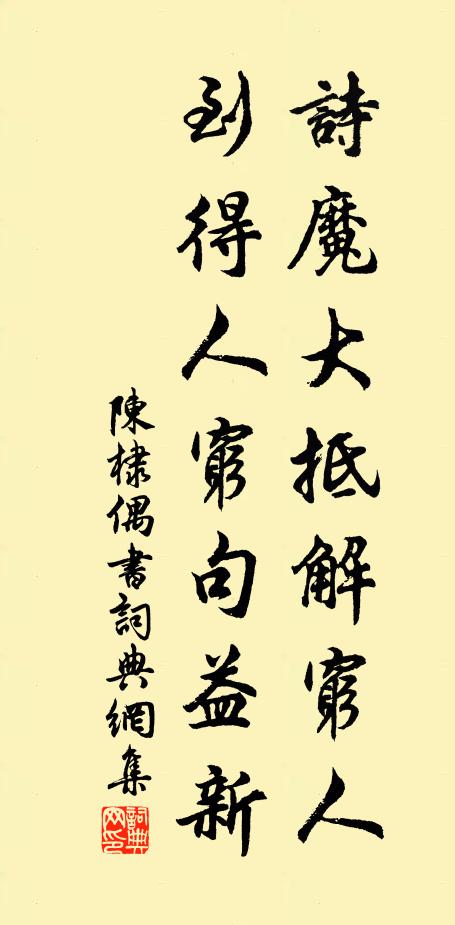 詩魔大抵解窮人
到得人窮句益新
陳棣偶書詞典網集
詞典网印